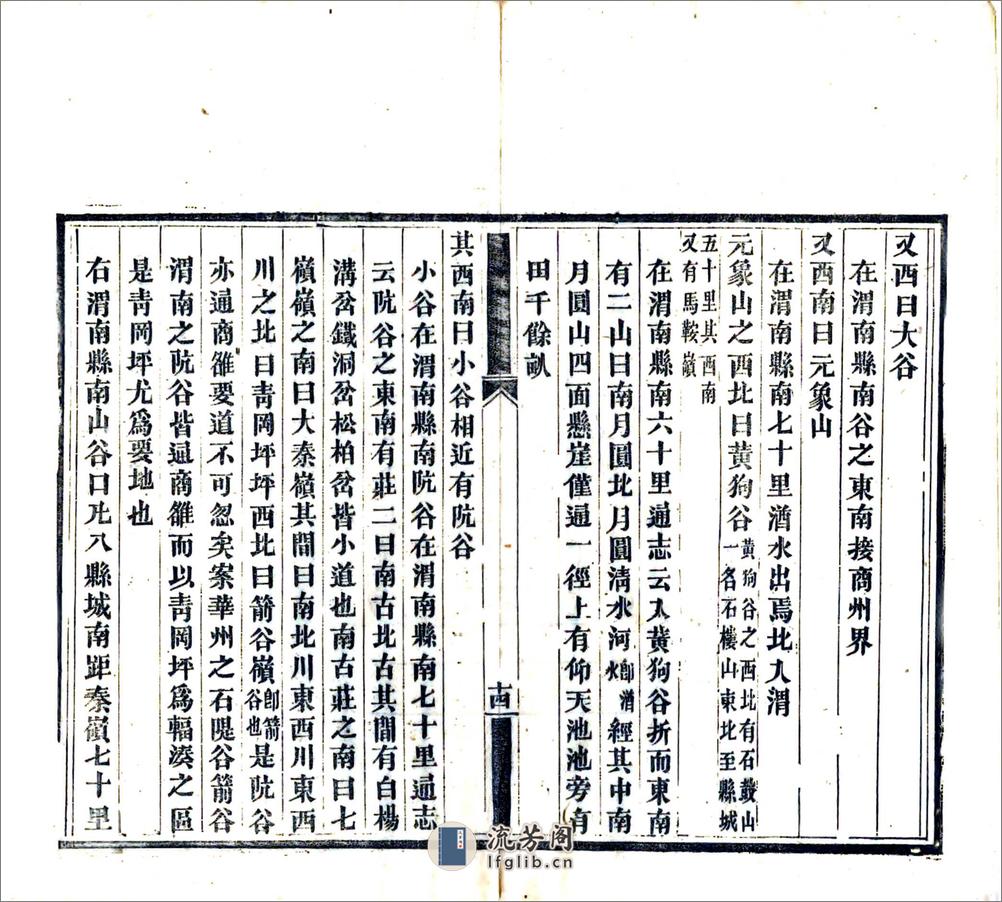 又西曰大谷
在渭南縣南谷之東南接商州界
又西南曰元象山
在渭南縣南七十里湭水出焉北入渭
元象山之西北曰黃狗谷黃狗谷之西北有石鼓山一名石樓山東北至縣城
五十里其西南又有馬鞍嶺
在渭南縣南六十里通志云入黃狗谷折而東南
有二山曰南月圓北月圓清水河卽湭水經其中南
月圓山四面懸崖僅通一徑上有仰天池池旁有
田千餘畝
十四
其西南曰小谷相近有阬谷
小谷在渭南縣南阬谷在渭南縣南七十里通志
云阬谷之東南有莊二曰南古北古其間有白楊
溝岔鐵洞岔松柏岔皆小道也南古莊之南曰七
嶺嶺之南曰大秦嶺其間曰南北川東西川東西
川之北曰靑岡坪坪西北曰箭谷嶺卽箭谷也是阬谷
亦通商雒要道不可忽矣案華州之石隄谷箭谷
渭南之阬谷皆通商雒而以靑岡坪爲輻湊之區
是靑岡坪尤爲要地也
右渭南縣南山谷口凡八縣城南距秦嶺七十里
流芳阁
lfglib.cn